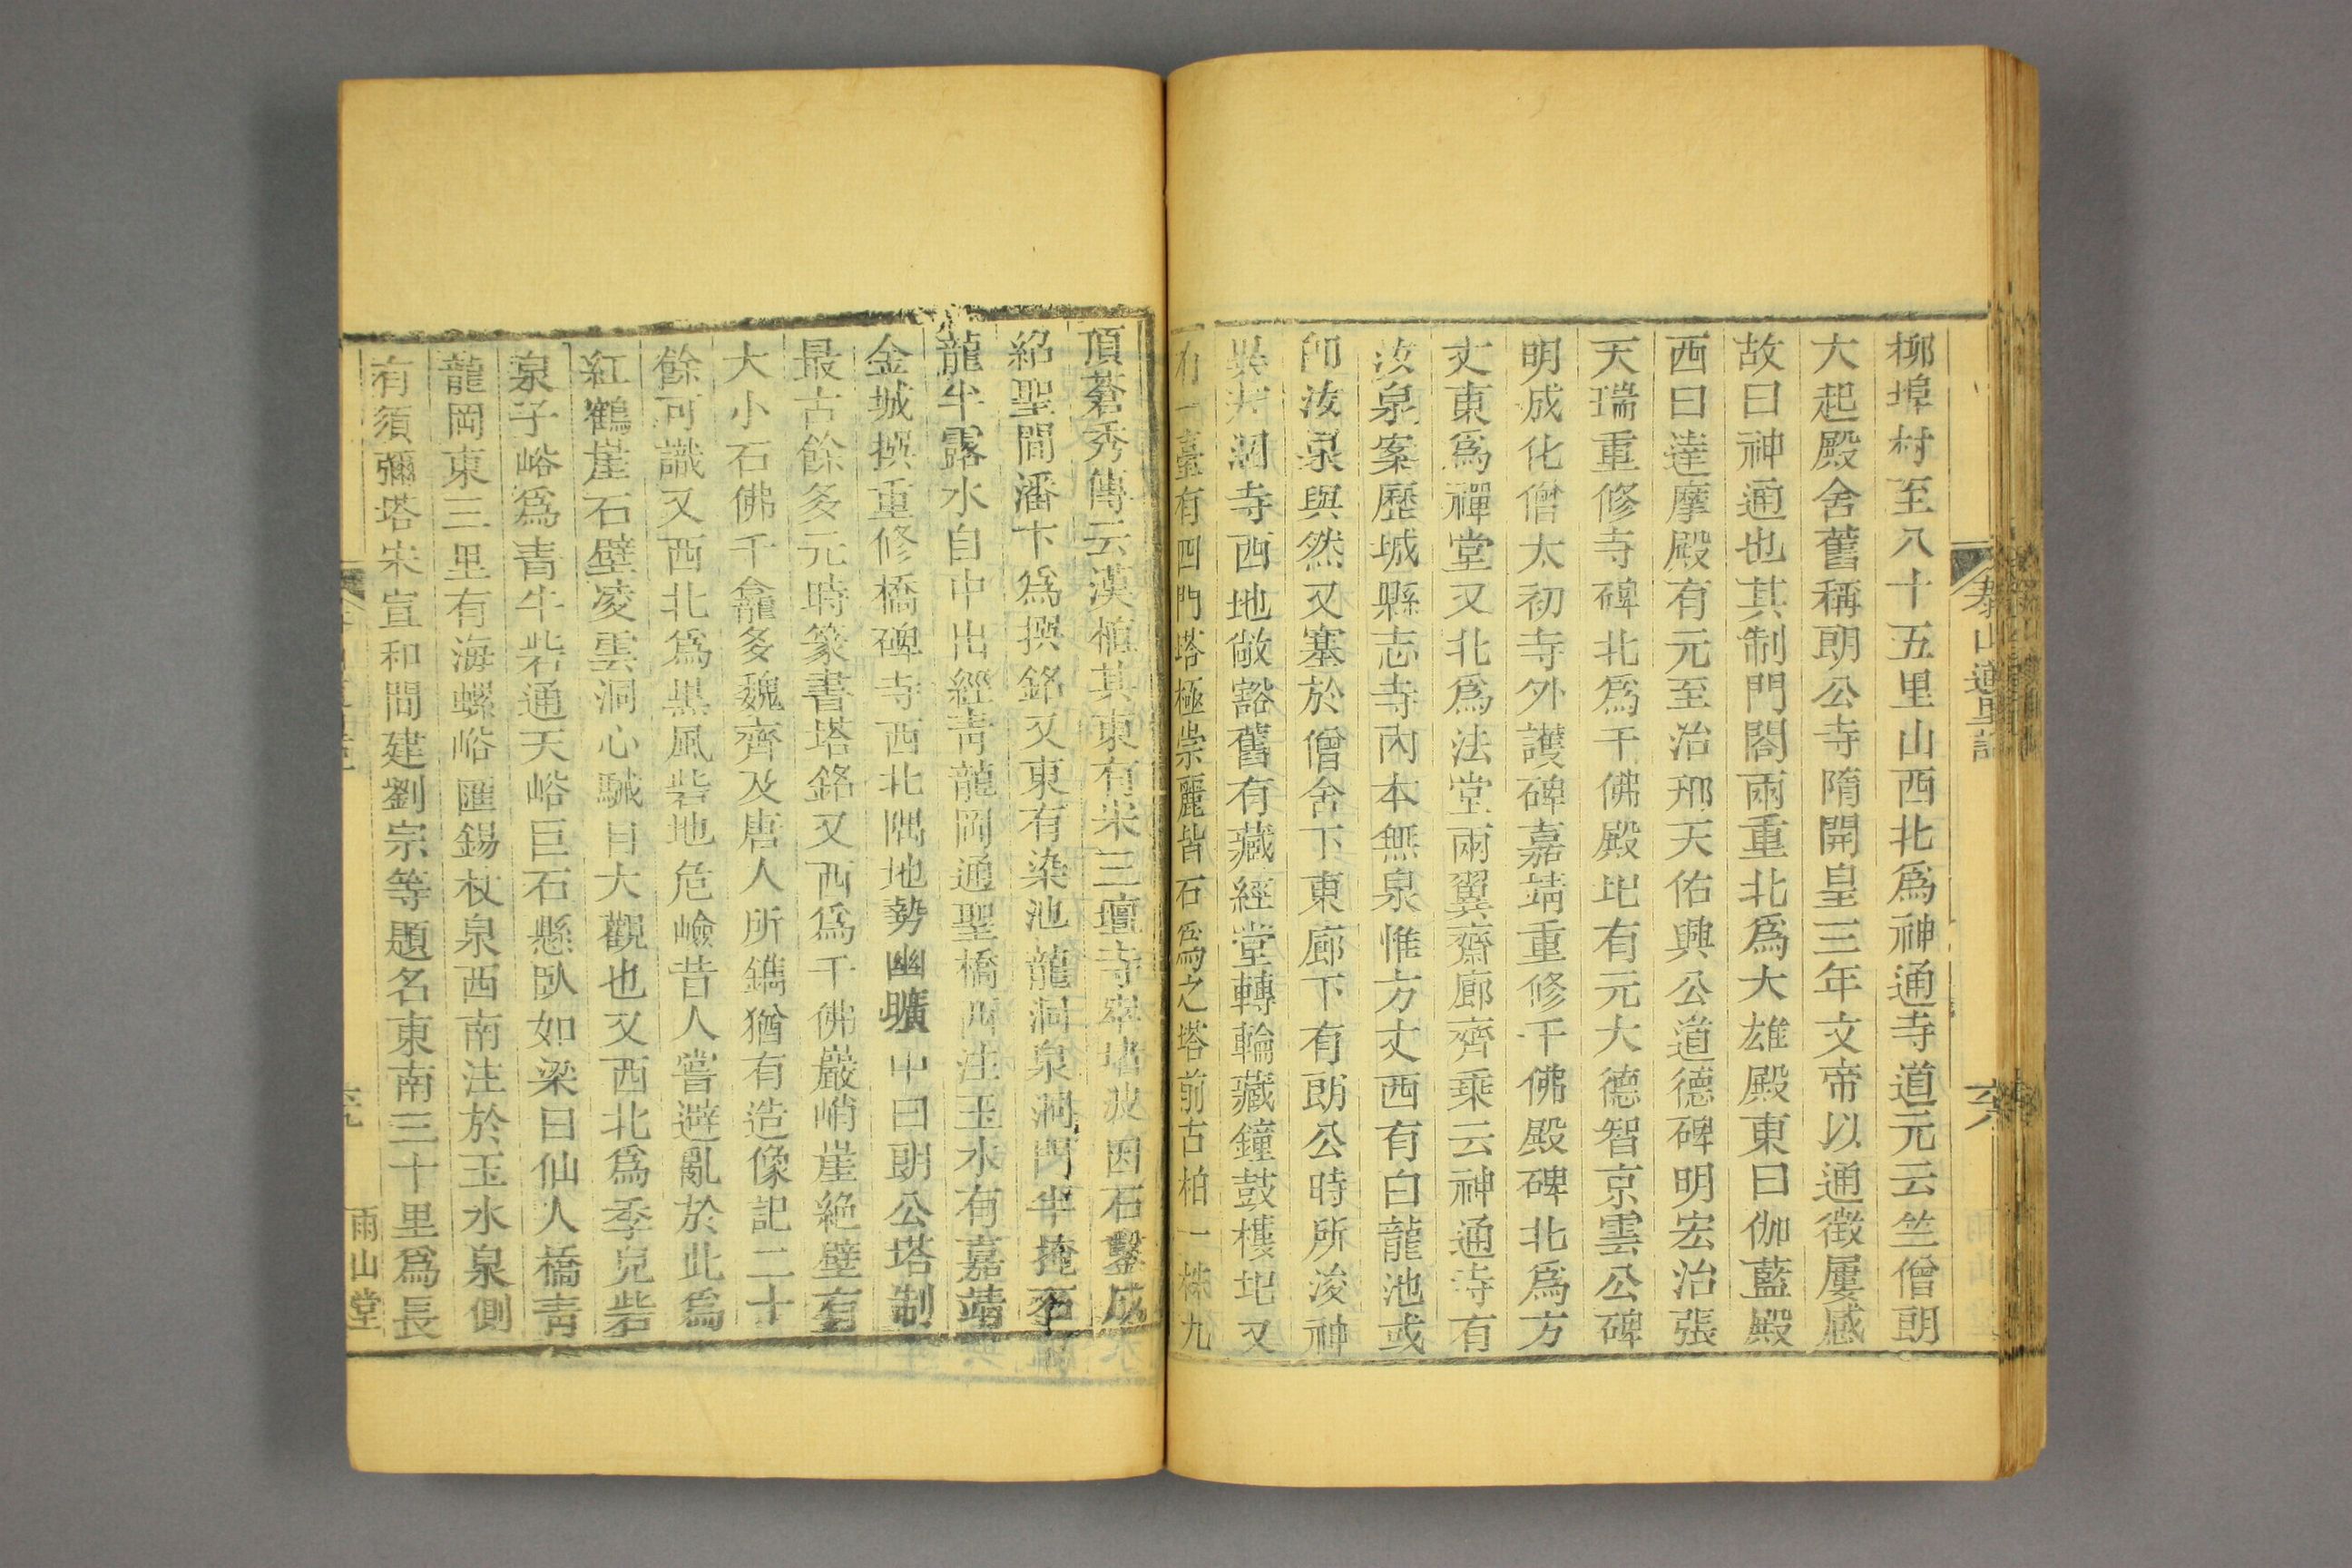 泰山道里記
柳埠村至八十五里山西北爲神通寺道元云竺僧朗
大起殿舍舊稱朗公寺隋開皇三年文帝以通徵屢感
故曰神通也其制門閣兩重北爲大雄殿東曰伽藍殿
西曰達摩殿有元至治邢天佑興公道德碑明宏治張
天瑞重修寺碑北爲千佛殿圯有元大德智京雲公碑
明成化僧太初寺外護碑嘉靖重修千佛殿碑北爲方
丈東爲禪堂又北爲法堂兩翼齋廊齊乘云神通寺有
汝泉案歷城縣志寺內本無泉惟方丈西有白龍池或
卽汝泉與然又塞於僧舍下東廊下有朗公時所浚神
異井洞寺西地敞豁舊有藏經堂轉輪藏鐘鼓樓圯又
有一臺有四門塔極崇麗皆石爲之塔前古柏一株九
頂蒼秀傳云漢植其東有米三壇寺窣堵波因石鑿成
紹聖間潘卞爲撰銘又東有染池龍洞泉洞門半掩石
龍半露水自中出經靑龍岡通聖橋西注玉水有嘉靖
金城撰重修橋碑寺西北隅地勢幽曠中曰朗公塔制
最古餘多元時篆書塔銘又西爲千佛巖峭崖絶壁有
大小石佛千龕多魏齊及唐人所鐫猶有造像記二十
餘可識又西北爲黑風砦地危嶮昔人嘗避亂於此爲
紅鶴崖石壁凌雲洞心駴目大觀也又西北爲季兒砦
泉子峪爲青牛砦通天峪巨石懸臥如梁曰仙人橋靑
龍岡東三里有海螺峪匯錫杖泉西南注於玉水泉側
有須彌塔宋宣和間建劉宗等題名東南三十里爲長
雨山堂